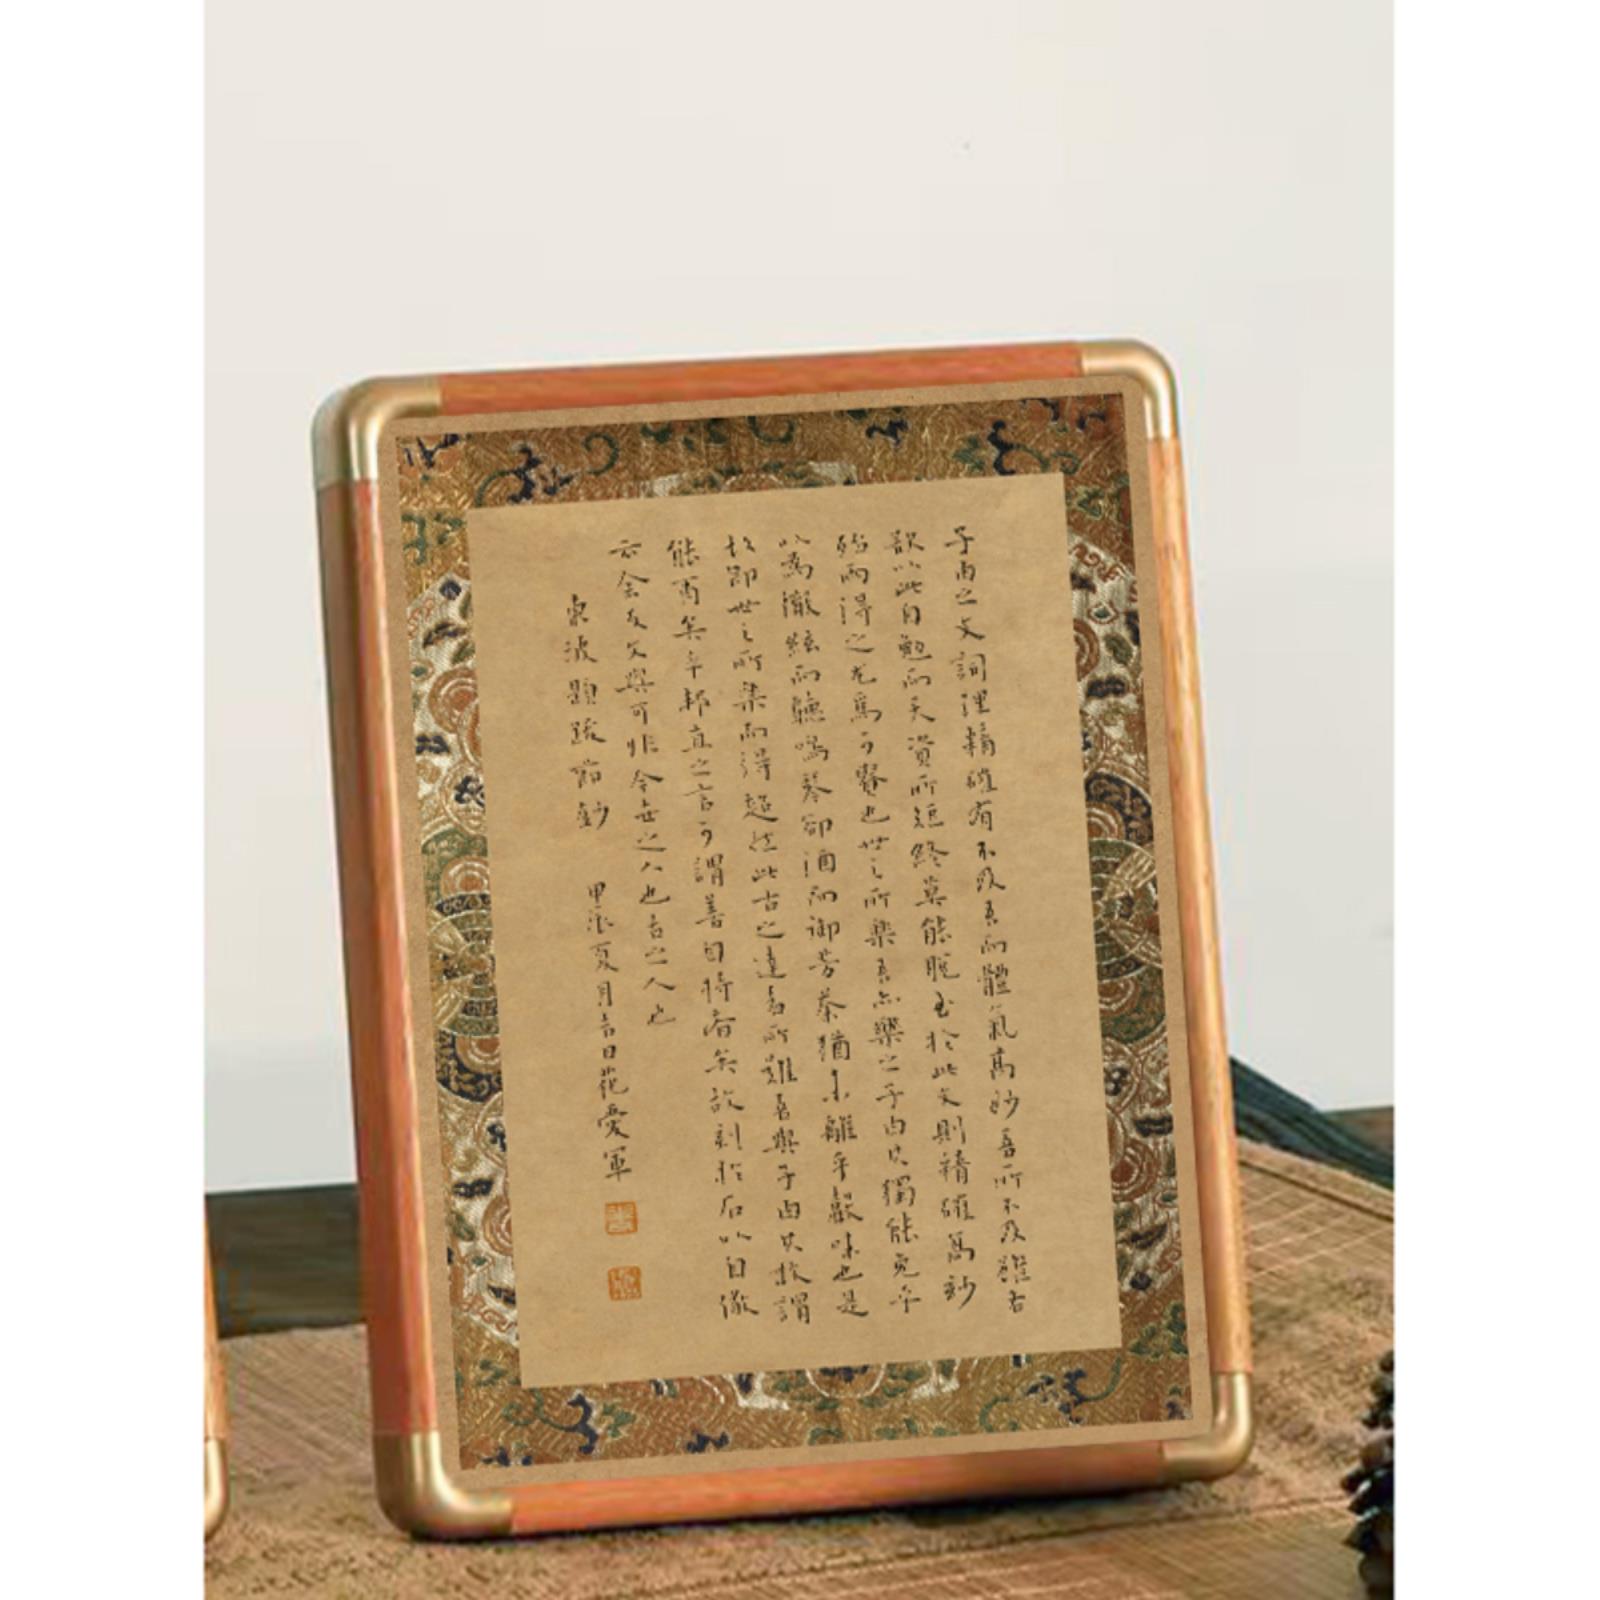 子由之文詞理精確有不及吾而體氣高妙吾所不及雖各
欲以此自勉而天資所短終莫能脫至於此文則精確高妙
殆兩得之尤為可貴也世之所樂吾亦樂之子由其獨能免乎
以為徹絃而聽鳴琴卻酒而御芳茶猶未離乎聲味也是
故即世之所樂而得超然此古之達者所難吾與子由其敢謂
能爾矣乎邦直之言可謂善自持者矣故刻於石以自儆
云余友文與可非今世之人也古之人也
東坡題跋節鈔 甲辰夏月吉日花愛軍